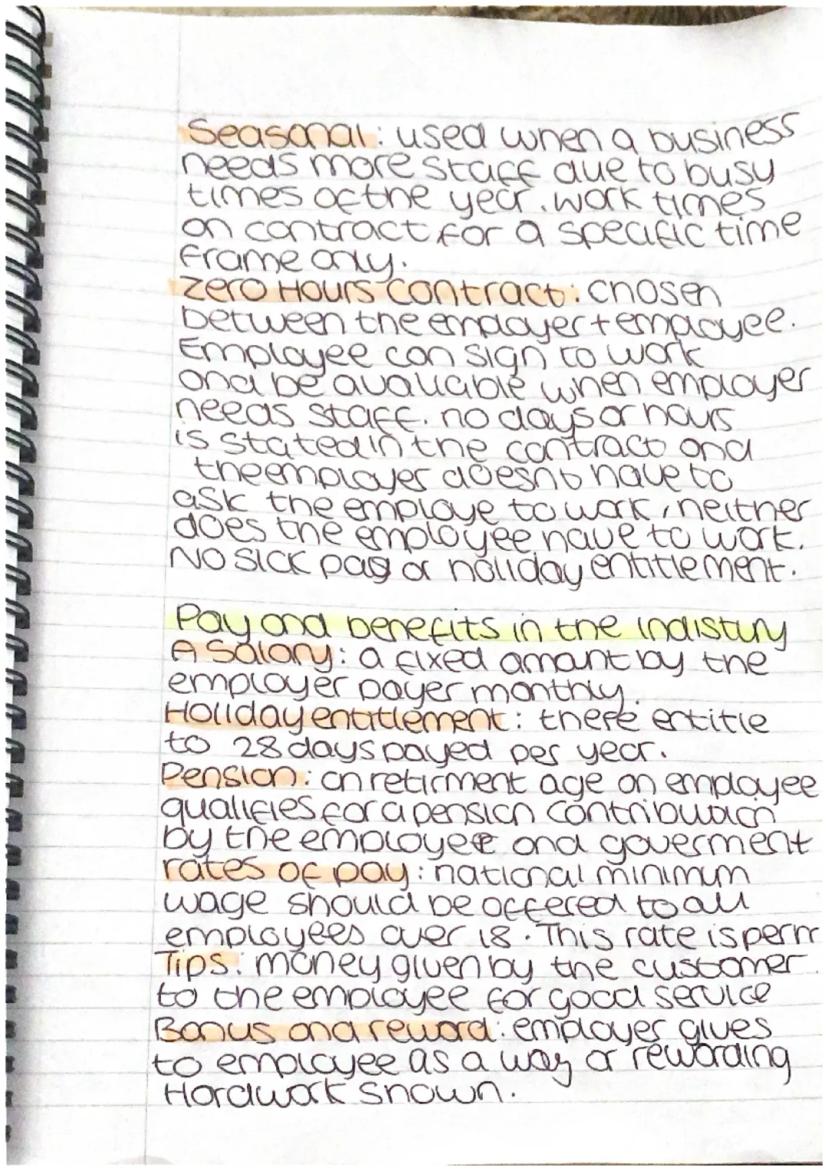 Seasonal: used when a business
needs more staff due to busy
times of the year. work times
on contract for a specific time
frame only.
Zero Hours contract: chosen
between the employer + employee.
Employee can sign to work
and be avaliable when employer
needs staff. no days or hours
is stated in the contract and
the employer doesnt have to
ask the employe to work, neither
does the employee have to work.
No sick pay or holiday entitlement.
Pay and benefits in the indistury
A Salary: a fixed amant by the
employer payer monthly.
Holiday entitlement: there entitle
to 28 days payed per year.
Pension: on retirment age an employee
qualifies for a pension contribution
by the employee and goverment
rates of pay: national minimum
wage should be offered to all
employees over 18. This rate is perm
Tips: money given by the customer
to the employee for good service
Bonus and reward: employer gives
to employee as a way of rewarding
Hardwork shown.